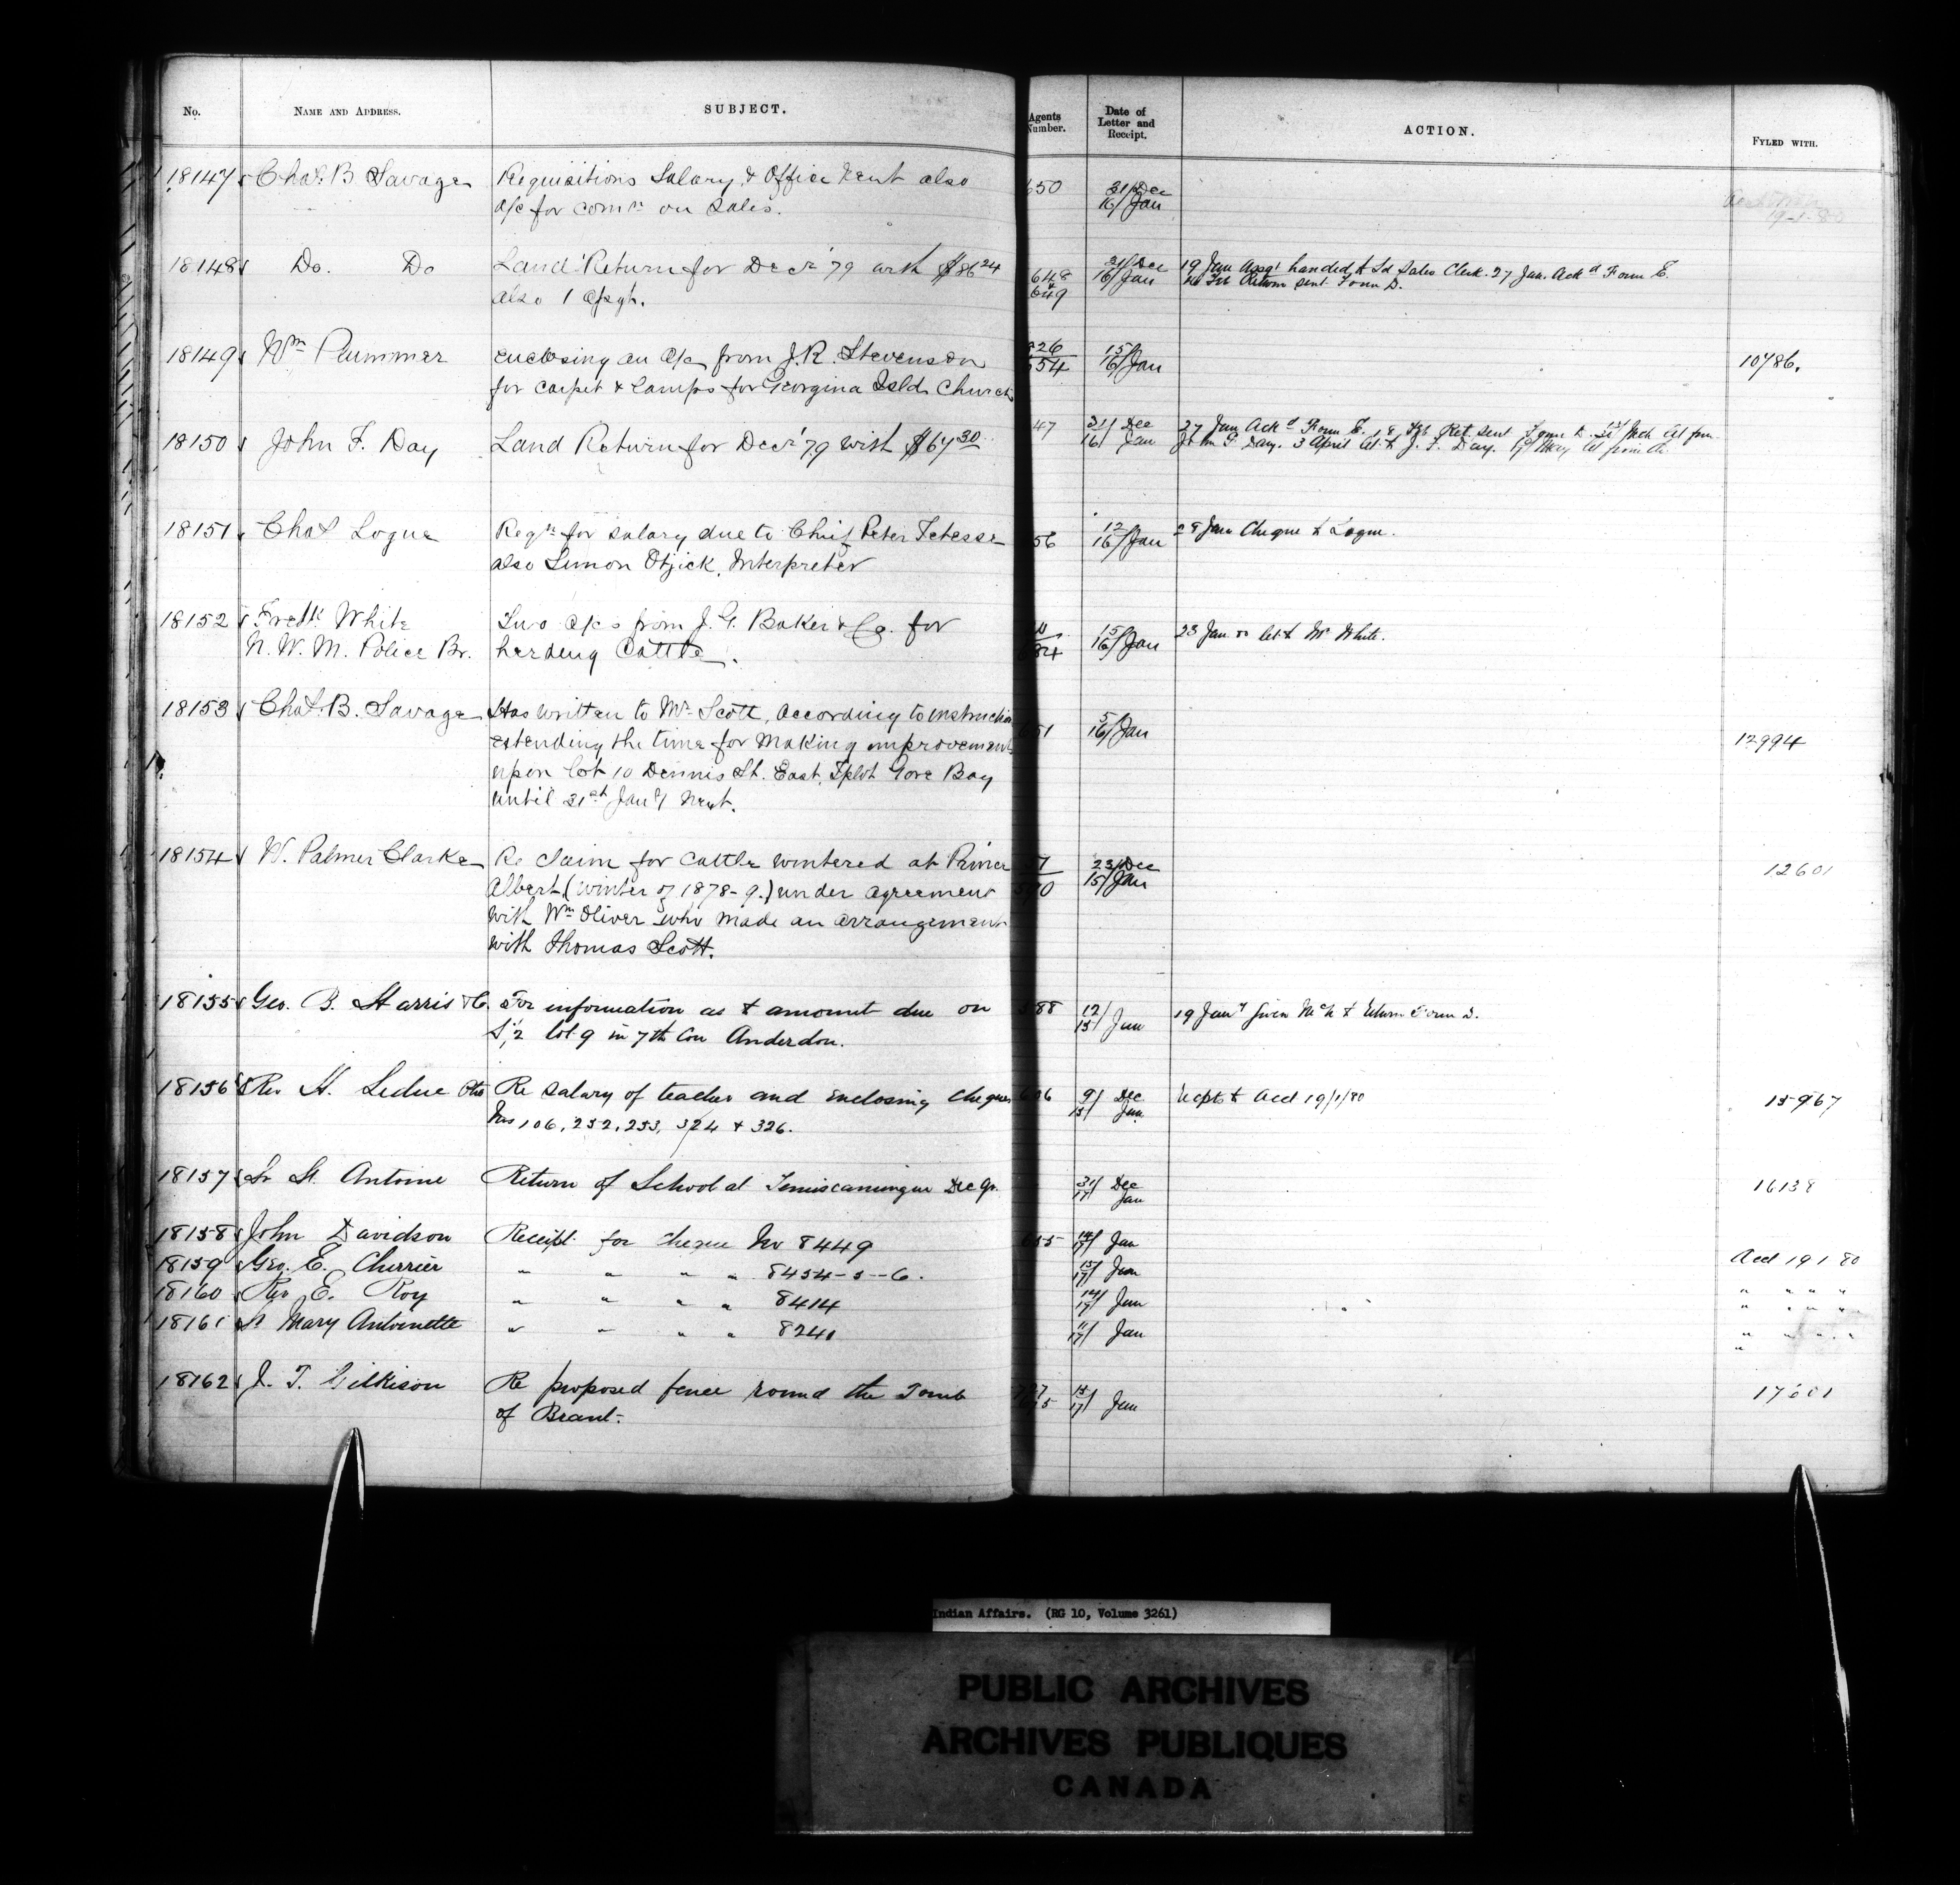 No. NAME AND ADDRESS. SUBJECT. Agents Number. Date of Letter and Receipt. ACTION. FYLED WITH.
18147 Chas. B. Savage Requisitions Salary & Office Rent also 650 31/ Dec
a/c for comn on Sales. 16/ Jan
19-1-80
18148 Do. Do Land Return for Decr '79 with $86 24 648 31/ Dec 19 Jan Assgt handed to Ld Sales Clerk. 27 Jan. Ackd Form E.
also 1 Assgt. & 649 16/ Jan Return sent Form D.
18149 Wm Plummer enclosing an a/c from J. R. Stevenson 226 15/
for carpet & lamps for Georgina Isld Church 554 16/ Jan 10786.
18150 John F. Day Land Return for Decr '79 with $67 30 47 31/ Dec 27 Jan Ackd Form E. Ret sent Form D. Let from
16/ Jan John F. Day. 3 April let to J. F. Day. May let from
18151 Chas Logue Reqn for salary due to Chief Peter Tetesse 56 12/ 28 Jan Cheque to Logue.
also Simon Otjick, Interpreter 16/ Jan
18152 Fredk White Two a/cs from J. G. Baker & Co. for 15/ 23 Jan let to Mr White.
N. W. M. Police Br. herding Cattle. 16/ Jan
18153 Chas. B. Savage Has written to Mr Scott, according to instruction
extending the time for making improvements 51 5/ 16/ Jan 12994
upon lot 10 Dennis St. East, Tplot Gore Bay
until 21st Jany next.
18154 W. Palmer Clarke Re claim for cattle wintered at Prince 23/ Dec 12601
Albert (winter of 1878-9.) under agreement 15/ Jan
with Wm Oliver who made an arrangement
with Thomas Scott.
18155 Geo. B. Harris & Co. For information as to amount due on 588 12/ 19 Jany given to Return Form D.
S. 1/2 lot 9 in 7th Con Anderdon. 15/ Jan
18156 Rev H. Leduc Otta Re salary of teacher and enclosing cheques 9/ Dec Recpts to Acct 19/1/80 15967
Nos 106, 252, 253, 324 & 326. 15/ Jan
18157 Sr St. Antoine Return of School at Temiscamingue Dec Qr. 31/ Dec 16138
17/ Jan
18158 John Davidson Receipt for cheque No 8449 655 14/ 17/ Jan
18159 Geo. E. Cherrier " " " " 8454-5-6. 15/ 17/ Jan Acct 19 1 80
18160 Rev E. Roy " " " " 8414 14/ 17/ Jan " " " "
18161 Sr Mary Antoinette " " " " 8241 11/ 17/ Jan " " " "
18162 J. T. Gilkison Re proposed fence round the Tomb 15/ 17/ Jan 17601
of Brant.
Indian Affairs. (RG 10, Volume 3261)
PUBLIC ARCHIVES
ARCHIVES PUBLIQUES
CANADA